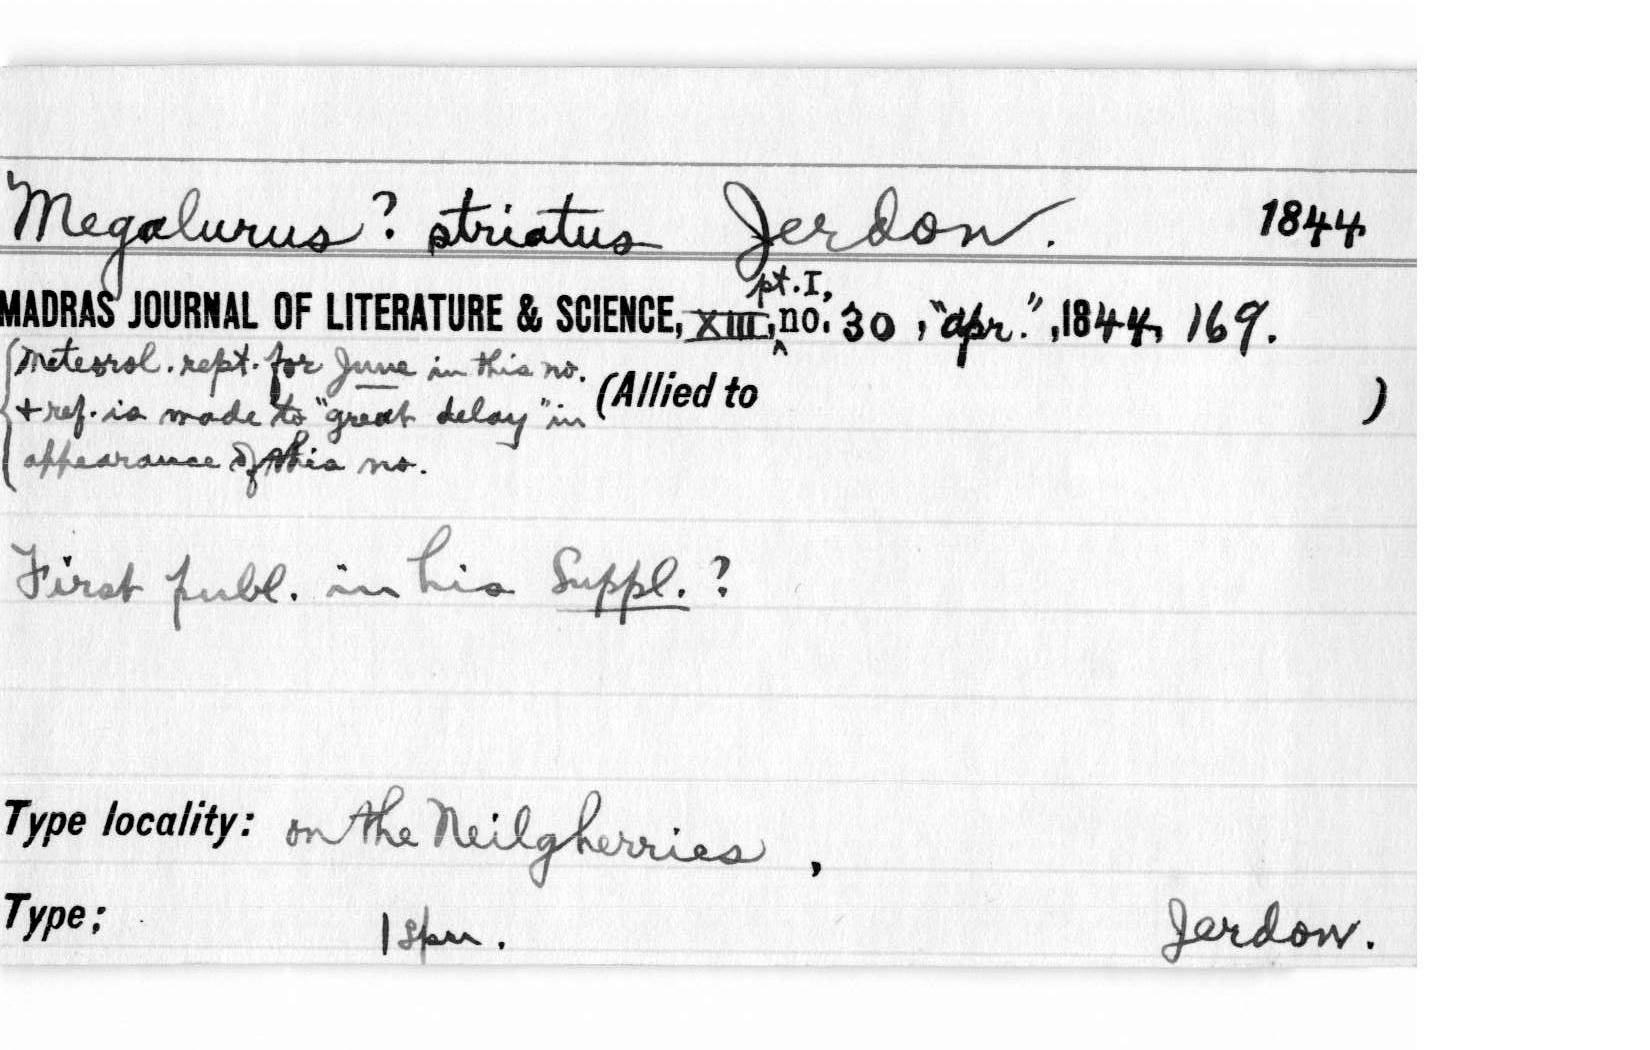 Megalurus? striatus Jerdon. 1844
MADRAS JOURNAL OF LITERATURE & SCIENCE, XIII, pt. I, no. 30, "apr.", 1844, 169.
Meteorol. rept. for June in this no.
+ ref. is made to "great delay" in (Allied to )
appearance of this no.
First publ. in his Suppl.?
Type locality: on the Neilgherries,
Type: 1 spm. Jerdon.